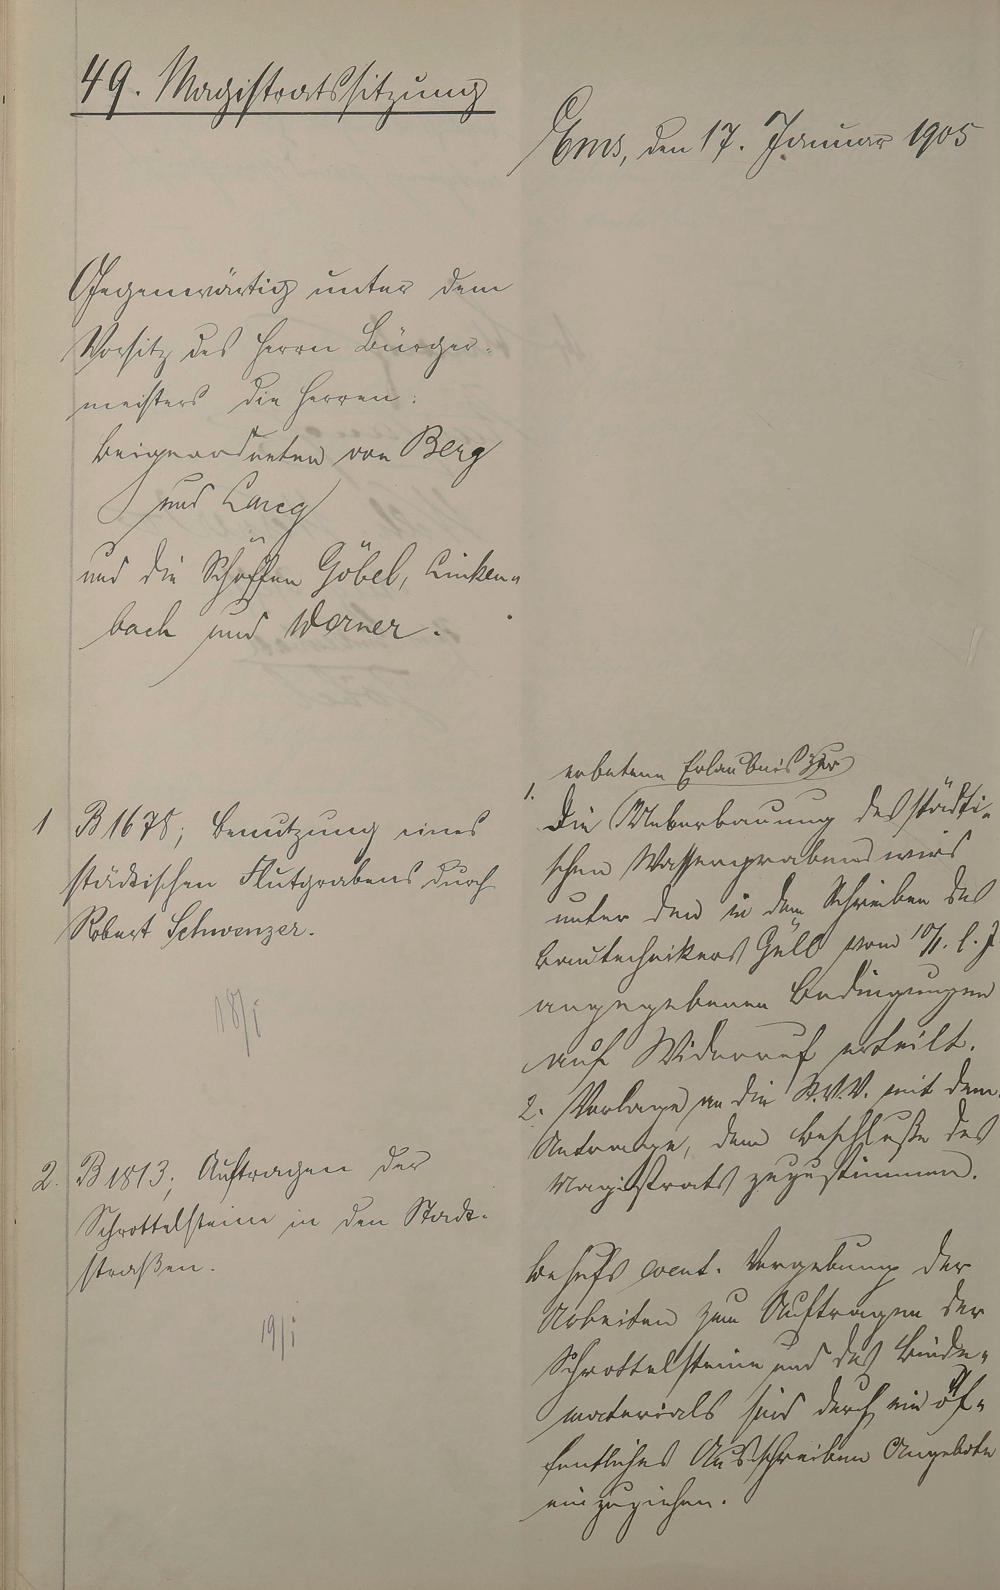 49. Magistratssitzung
Ems, den 17. Januar 1905
Gegenwärtig unter dem
Vorsitz des Herrn Bürger-
meisters die Herren:
Beigeordneten von Berg
und Lang
und die Schöffen Göbel, Linken-
bach und Werner.
1 B 1678; Benutzung eines
städtischen Flutgrabens durch
Robert Schwenzer.
18/I
erbetene Erlaubnis zur
1. Die Ueberbauung des städti-
schen Wassergrabens wird
unter den in dem Schreiben des
Bautechnikers Güll vom 10/1. l. J.
angegebenen Bedingungen
auf Widerruf erteilt.
2. Vorlage an die St.V.V. mit dem
Antrage, dem Beschluße des
Magistrats zuzustimmen.
2. B 1813; Auftragen der
Schrottelsteine in den Stadt-
straßen.
19/I
Behufs event. Vergebung der
Arbeiten zum Auftragen der
Schrottelsteine und des Binde-
materials sind durch ein öf-
fentliches Ausschreiben Angebote
einzuziehen.